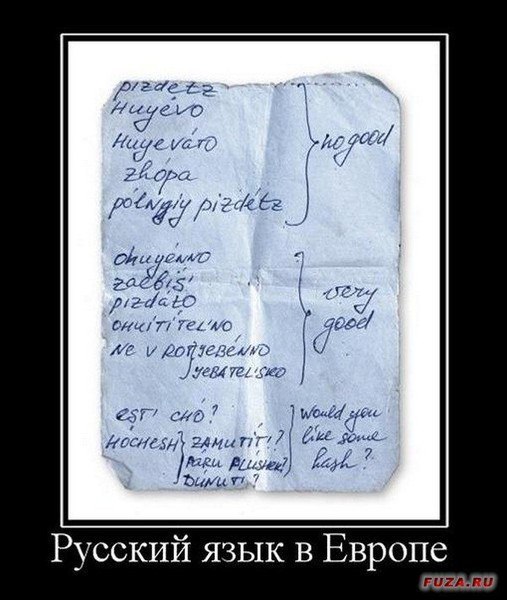 pizdétz
Huyévo
Huyeváto
zhópa
pólnyiy pizdétz
no good
ohuyénno
zaebís'
pizdáto
ohuítíteľno
ne v rot yebénno
yebáteľsko
very
good
esti chó?
hóchesh zamutíti?
páru plúshek?
dúnuti?
Would you
like some
hash?
Русский язык в Европе
FUZA.RU